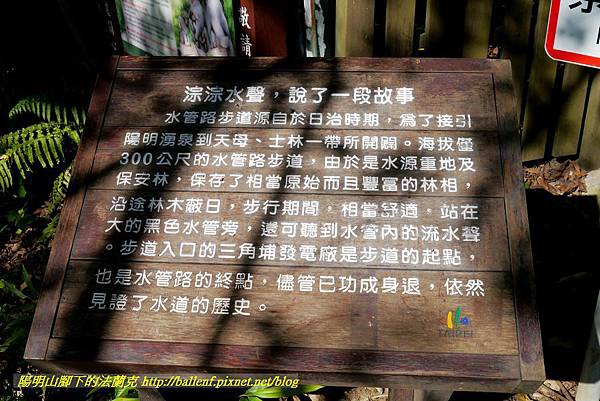 敬請
淙淙水聲，說了一段故事
水管路步道源自於日治時期，為了接引
陽明湧泉到天母、士林一帶所開闢。海拔僅
300公尺的水管路步道，由於是水源重地及
保安林，保存了相當原始而且豐富的林相，
沿途林木蔽日，步行期間，相當舒適，站在
大的黑色水管旁，還可聽到水管內的流水聲
。步道入口的三角埔發電廠是步道的起點，
也是水管路的終點，儘管已功成身退，依然
見證了水道的歷史。
TAIPEI
陽明山腳下的法蘭克 http://ballenf.pixnet.net/blog